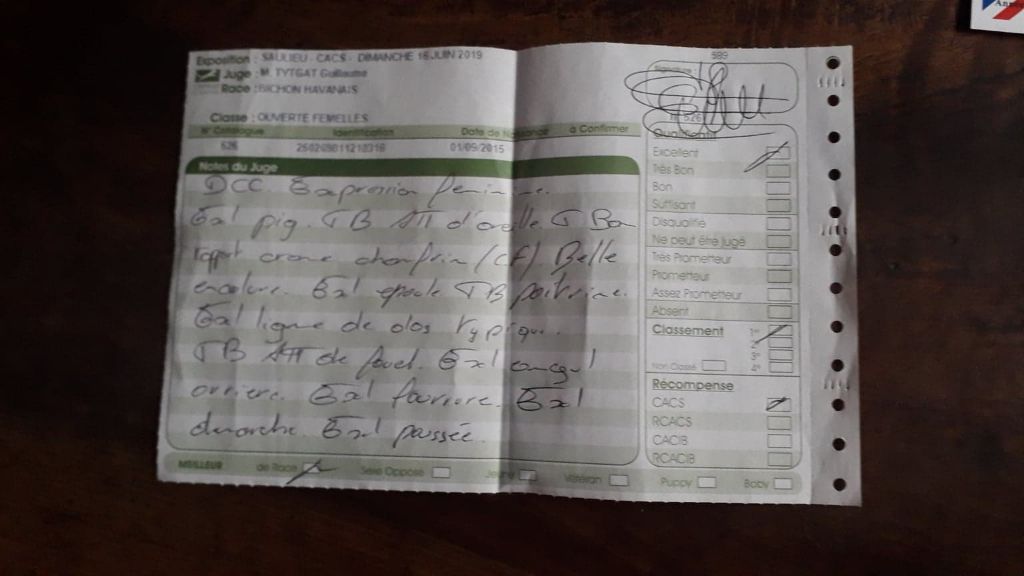 589
Exposition : SAULIEU - CACS - DIMANCHE 16 JUIN 2019
Juge : M. TYTGAT Guillaume
Race : BICHON HAVANAIS
Classe : OUVERTE FEMELLES
N° Catalogue Identification Date de Naissance à Confirmer
526 01/09/2015
Notes du Juge
DCC. Expression féminine.
Exl pig. TB ATT d'oreille. T Bon
rapport crane chanfrein (CF). Belle
encolure. Exl epaule TB poitrine.
Exl ligne de dos typique.
TB ATT de fouet. Exl angul
arriere. Exl fourrure. Exl
demarche. Exl
MEILLEUR de Race Sexe Opposé Jeune Vétéran Puppy Baby
526
Qualificatif
Excellent
Très Bon
Bon
Suffisant
Disqualifié
Ne peut être jugé
Très Prometteur
Prometteur
Assez Prometteur
Absent
Classement 1er
2e
3e
Non Classé 4e
Récompense
CACS
RCACS
CACIB
RCACIB